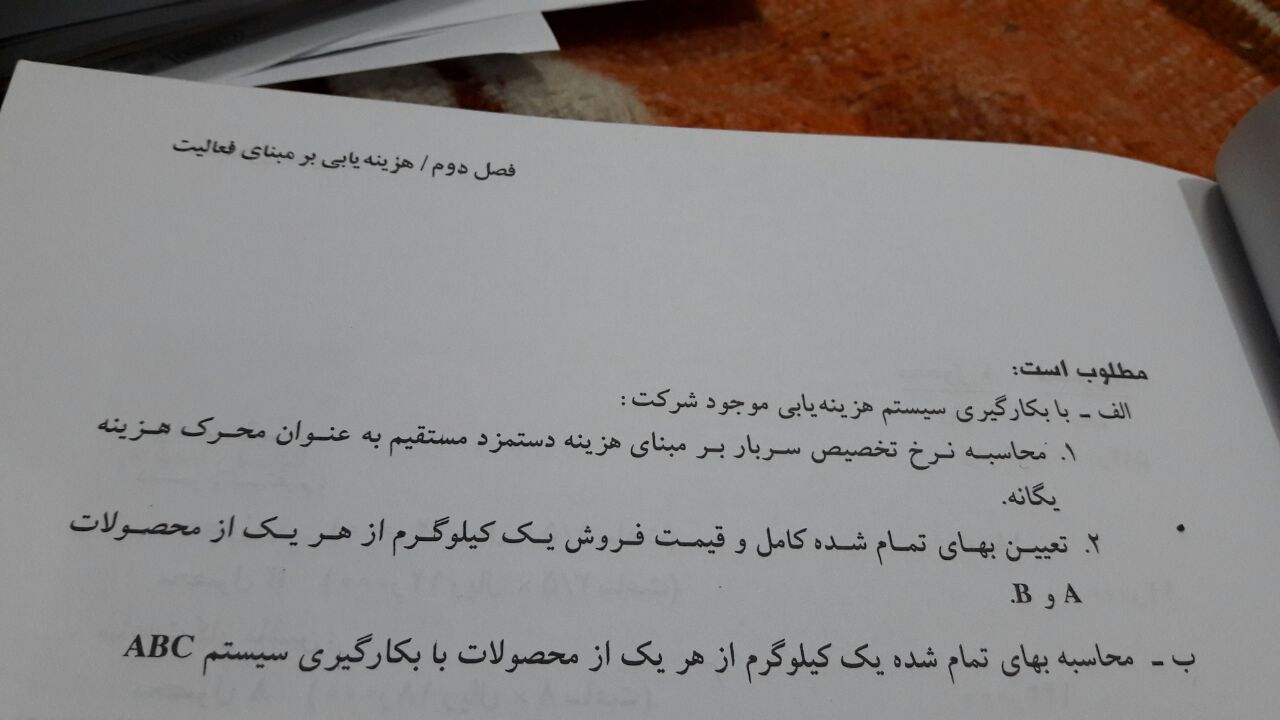 فصل دوم / هزینه‌یابی بر مبنای فعالیت
مطلوب است:
الف ـ با بکارگیری سیستم هزینه‌یابی موجود شرکت:
۱. محاسبه نرخ تخصیص سربار بر مبنای هزینه دستمزد مستقیم به عنوان محرک هزینه
یگانه.
۲. تعیین بهای تمام شده کامل و قیمت فروش یک کیلوگرم از هر یک از محصولات
A و B.
ب ـ محاسبه بهای تمام شده یک کیلوگرم از هر یک از محصولات با بکارگیری سیستم ABC